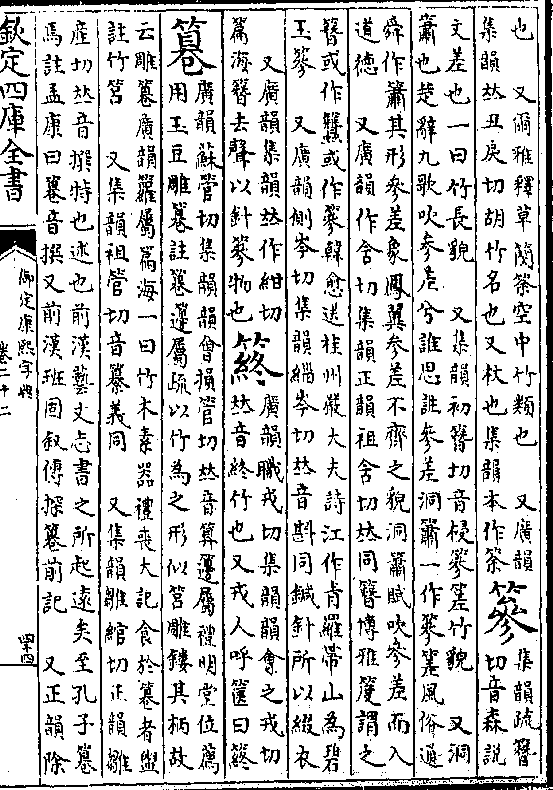 也　又爾雅釋草簢筡空中竹類也　又廣韻
集韻𠀤丑戾切胡竹名也又杖也集韻本作筡
篸
集韻疏簪
切音森說
文差也一曰竹長貌　又集韻初簪切音㯲篸䇬竹貌　又洞
簫也楚辭九歌吹參差兮誰思註參差洞簫一作篸䇬風俗通
舜作簫其形參差象鳳翼參差不齊之貌洞簫賦吹參差而入
道德　又廣韻作含切集韻正韻祖含切𠀤同簪博雅篸謂之
簪或作鐕或作篸韓愈送桂州嚴大夫詩江作青羅帶山為碧
玉篸　又廣韻側岑切集韻緇岑切𠀤音斟同鍼針所以綴衣
　又廣韻集韻𠀤作紺切
篇海簪去聲以針篸物也
䈺
廣韻職戎切集韻韻會之戎切
𠀤音終竹也又戎人呼籩曰䈺
篹
廣韻蘇管切集韻韻會損管切𠀤音算籩屬禮明堂位薦
用玉豆雕篹註篹籩屬疏以竹為之形似筥雕鏤其柄故
云雕篹廣韻籮屬篇海一曰竹木素器禮喪大記食於篹者盥
註竹筥　又集韻祖管切音纂義同　又集韻雛綰切正韻雛
產切𠀤音撰特也述也前漢藝文志書之所起遠矣至孔子篹
焉註孟康曰篹音撰又前漢班固叙傳探篹前記　又正韻除
欽定四庫全書
御定康熙字典
卷二十二
四十四